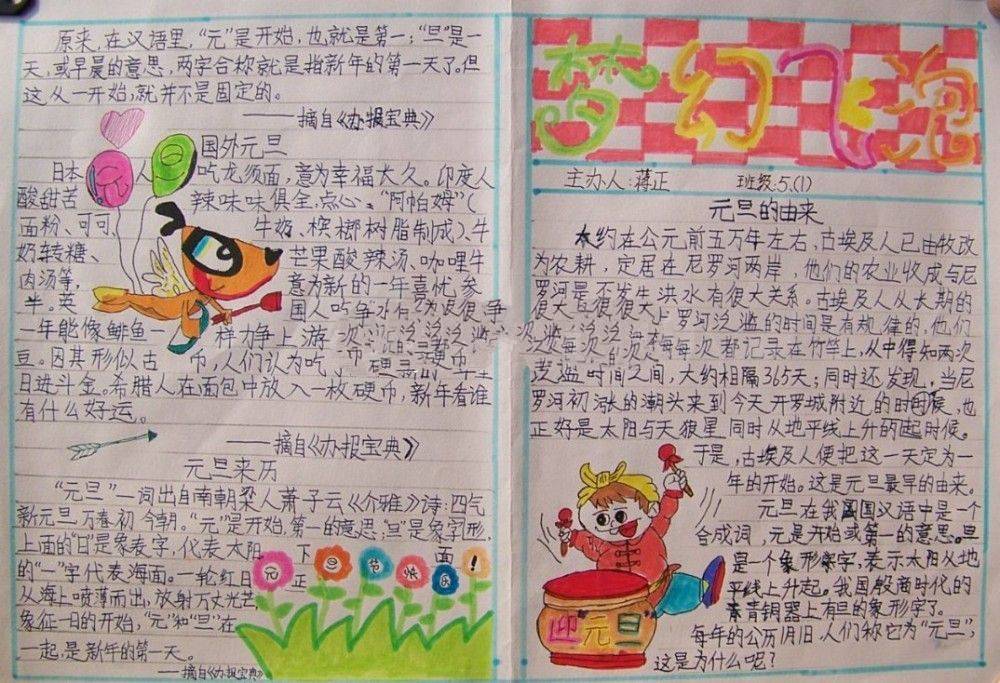 原来,在汉语里,“元”是开始,也就是第一;“旦”是一
天,或早晨的意思,两字合称就是指新年的第一天了。但
这从一开始,就并不是固定的。
——摘自《办报宝典》
国外元旦
日本 元 人 旦 吃龙须面,意为幸福大久。印度人
酸甜苦 辣味味俱全点心。“阿帕姆”(
面粉、可可、 牛奶、槟榔树脂制成)、牛
奶转糖、 芒果酸辣汤、咖哩牛
肉汤等, 意为新的一年喜忧参
半。英 国人吃
一年能像鲱鱼一 样力争上游
豆。因其形似古 币,人们认为吃
日进斗金。希腊人在面包中放入一枚硬币,新年看谁
有什么好运。
——摘自《办报宝典》
元旦来历
“元旦”一词出自南朝梁人萧子云《介雅》诗:四气
新元旦,万春初今朝。“元”是开始,第一的意思;“旦”是象字形,
上面的“日”是象表字,代表太阳 下 面
的“一”字代表海面。一轮红日
元 旦 快 乐 !
从海上喷薄而出,放射万丈光芒
象征一日的开始,“元”和“旦”在
一起,是新年的第一天。
——摘自《办报宝典》
梦幻飞泡
主办人:蒋正 班级:5.(1)
元旦的由来
大约在公元前五万年左右,古埃及人已由牧改
为农耕,定居在尼罗河两岸,他们的农业收成与尼
罗河是否发生洪水有很大关系。古埃及人从长期的
罗河泛滥的时间是有规律的,他们
每次都记录在竹竿上,从中得知两次
泛滥时间之间,大约相隔365天;同时还发现,当尼
罗河初涨的潮头来到今天开罗城附近的时候,也
正好是太阳与天狼星同时从地平线上升的起时候。
于是,古埃及人便把这一天定为一
年的开始。这是元旦最早的由来。
元旦在我国汉语中是一个
合成词,元是开始或第一的意思。旦
是一个象形字,表示太阳从地
平线上升起。我国殷商时代的
青铜器上有旦的象形字了。
每年的公历1月1日,人们称它为“元旦”,
这是为什么呢?
迎元旦